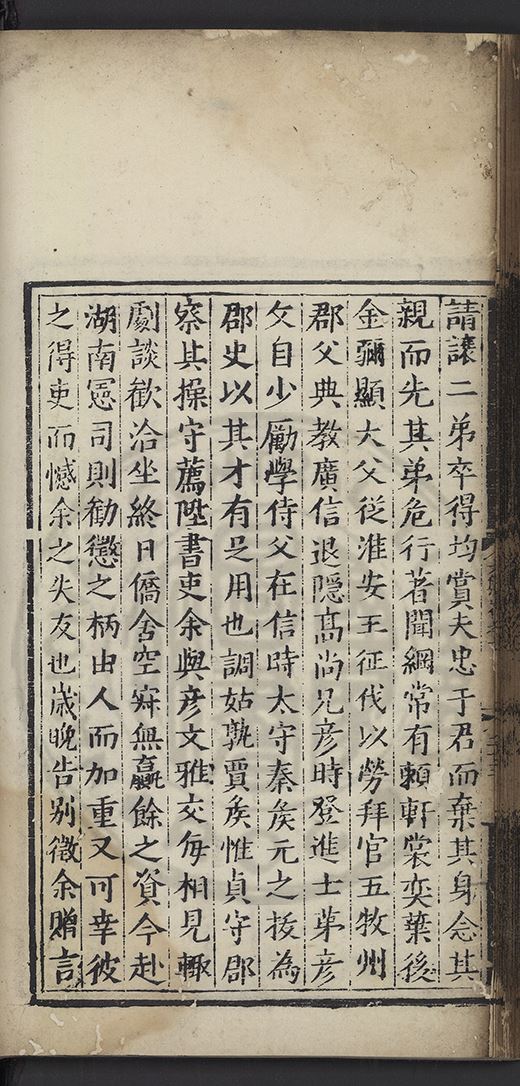 請讓二弟卒得均賞夫忠于君而棄其身念其
親而先其弟危行著聞綱常有頼軒裳奕葉後
金彌顯大父從淮安王征伐以勞拜官五牧州
郡父典教廣信退隱高尚兄彥時登進士弟彥
文自少勵學侍父在信時太守秦矦元之㧞為
郡史以其才有足用也調姑孰賈矦惟貞守郡
察其操守薦陞書吏余與彥文雅交每相見輙
劇談歡洽坐終日僑舍空㝛無贏餘之資今赴
湖南憲司則勸懲之柄由人而加重又可幸彼
之得吏而憾余之失友也歲晚告别徵余贈言